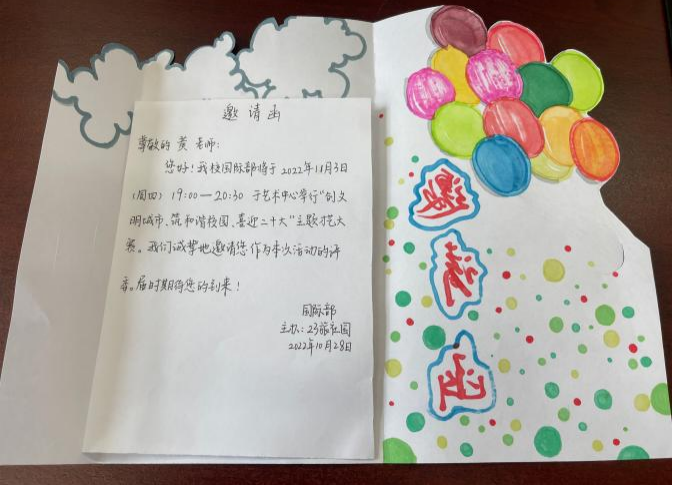 邀请函
尊敬的 黄 老师:
您好!我校国际部将于2022年11月3日
(周四) 19:00—20:30 于艺术中心举行"创文
明城市、筑和谐校园、喜迎二十大"主题才艺大
赛。我们诚挚地邀请您作为本次活动的评
委。届时期待您的到来!
国际部
主办:23 社团
2022年10月28日